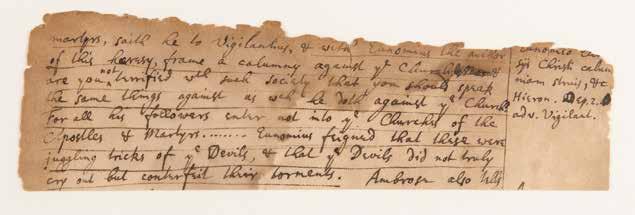 martyrs, saith he to Vigilantius, & with Eunomius the author
of this heresy, frame a calumny against yᵉ Church
are you not terrified wth such society that you should speak
the same things against us wch he doth against yᵉ Church
For all his followers enter not into yᵉ Churches of the
Apostles & Martyrs........ Eunomius feigned that these were
juggling tricks of yᵉ Devils, & that yᵉ Devils did not truly
cry out but conterfeit their torments. Ambrose also tells
Eunomio
sijs Christi calum
niam struis, &c
Hieron. Ep. 2.
adv. Vigilant.